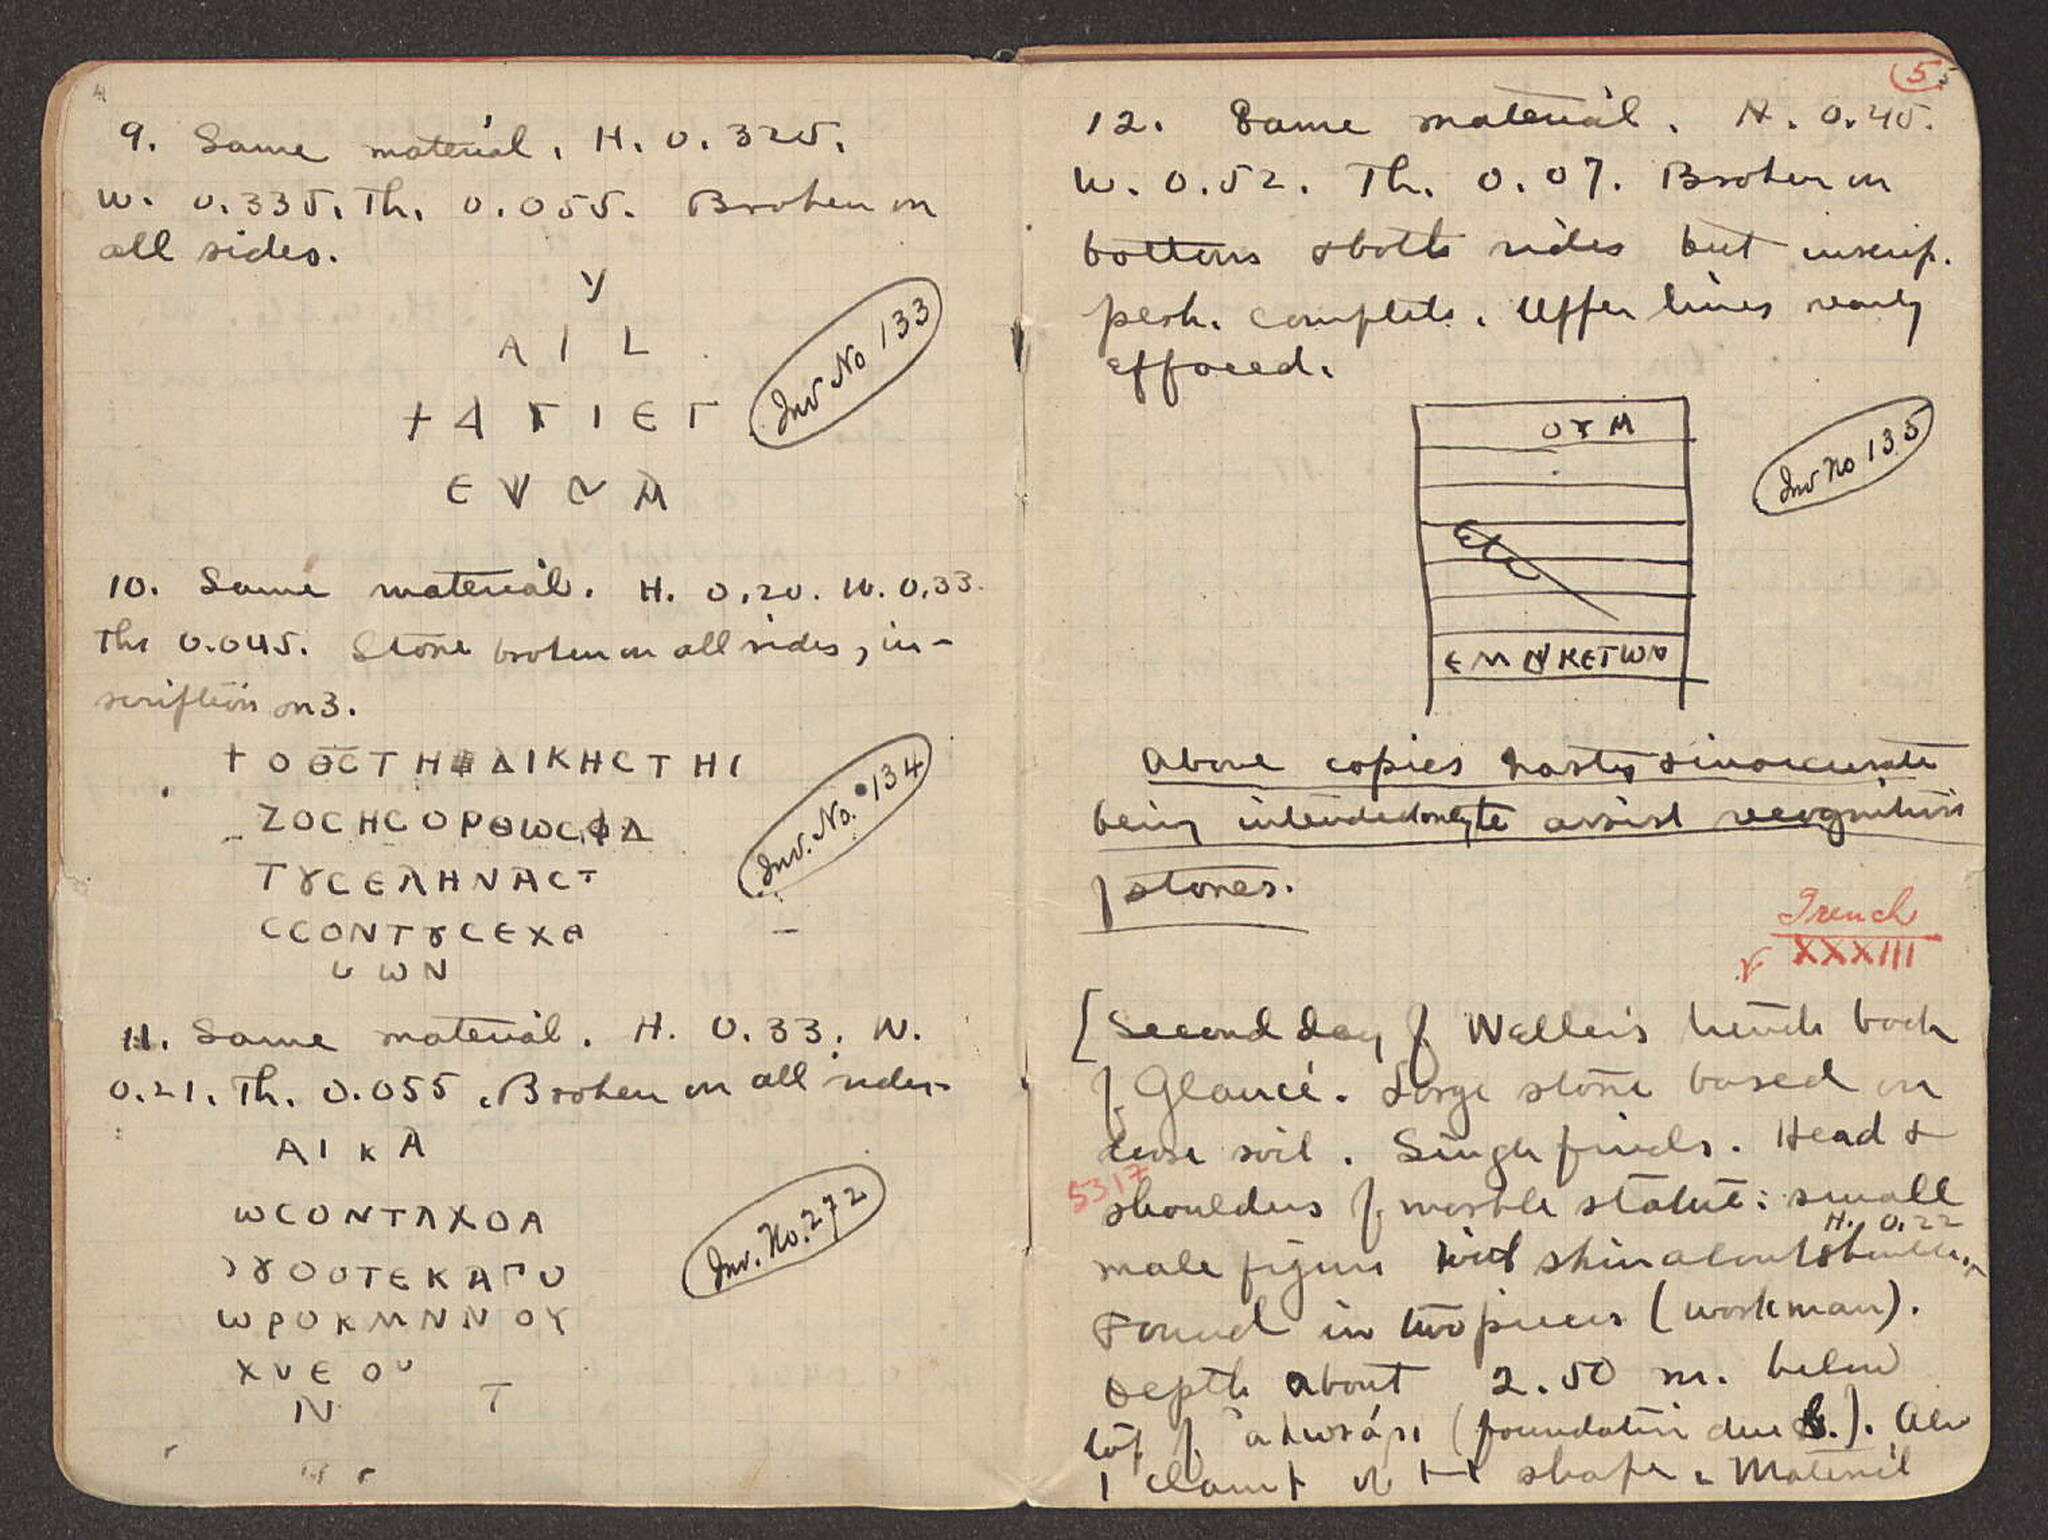 4
9. Same material. H. 0.325.
W. 0.335. Th. 0.055. Broken on
all sides.
Inv No 133
Α Ι L
+ Δ Τ Ι Ε Γ
10. Same material. H. 0.20. W. 0.33.
Th. 0.045. Stone broken on all sides, in-
scription on 3.
+ Ο ΘC Τ Η ΔΙΚΗC Τ ΗC
Inv. No. 134
ΖΟCΗCΟΡΘWCΦΔ
ΤȣCΕΛΗΝΑCΤ
CCΟΝΤȣCΕΧΑ
υ W Ν
11. Same material. H. 0.33. W.
0.21. Th. 0.055. Broken on all sides.
Α Ι Κ Α
WCΟΝΤΑΧΟΑ
Inv. No. 272
ȣΟΟΤΕΚΑΓΟ
WΡΟΚΜΝΝ ΟΥ
ΧυΕ Ου
Ν Τ
5 5
12. Same material. H. 0.45.
W. 0.52. Th. 0.07. Broken on
bottom & both sides but inscrip.
perh. complete. Upper lines nearly
effaced.
ΟΥΜ
Inv No 135
Etc
ΕΜΝΚΕΤWΟ
Above copies hasty & inaccurate
being intended only to assist recognition
of stones.
Trench
XXXIII
[Second day of Weller's trench back
of Glaucé. Large stone based on
loose soil. Single finds. Head &
5317
shoulders of marble statue: small
H. 0.22
male figure with skin about shoulders
Found in two pieces (workman).
Depth about 2.50 m. below
top of (foundation due S.). Also
1 clamp of H shape. Material